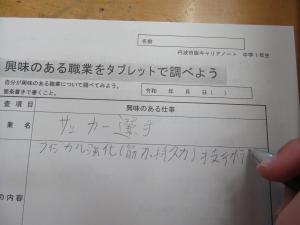 名前
丹波市版キャリアノート 中学1年生
興味のある職業をタブレットで調べよう
自分が興味のある職業について調べてみよう。
箇条書きで書くこと。
令和 年 月 日( )
査項目
興味のある仕事
業名
サッカー選手
フィジカル強化(筋力.持久力)技術
の内容